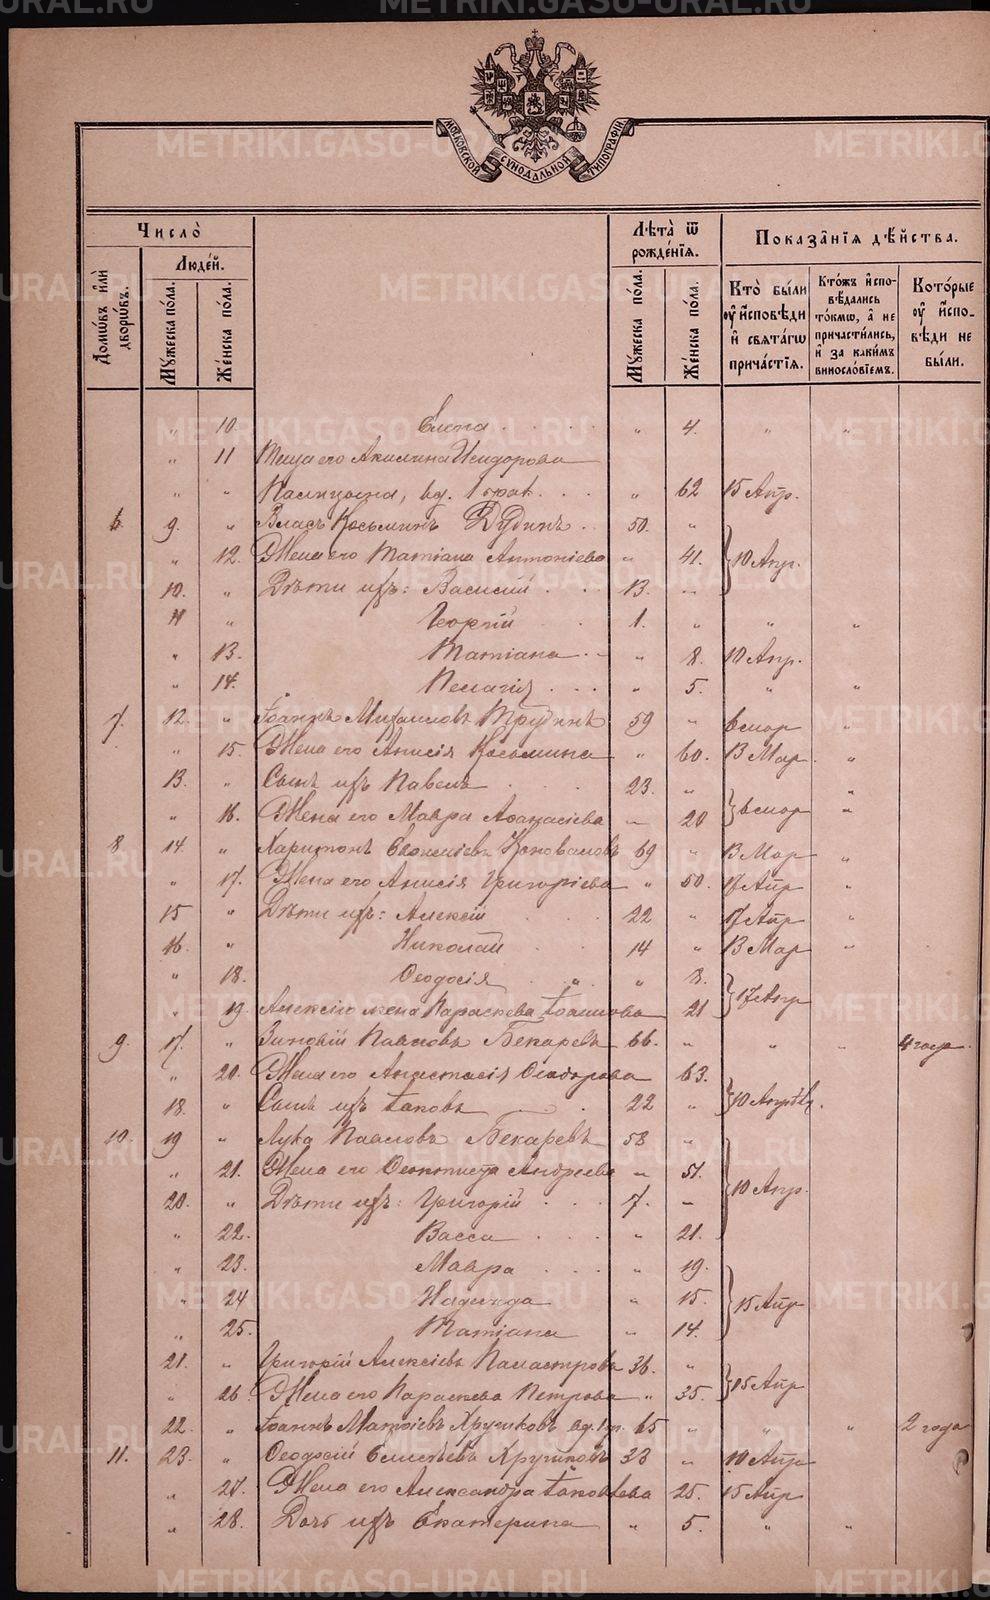 МОСКОВСКОЙ СѴНОДАЛЬНОЙ ТИПОГРАФІИ.
Число̀
Людéй.
Домѡ́въ и҆лѝ дворѡ́въ.
Мꙋ́жеска по́ла.
Же́нска по́ла.
Лѣ́та ѿ рожде́нїѧ.
Мꙋ́жеска по́ла.
Же́нска по́ла.
Показа̑нїѧ дѣ́йства.
Кто̀ бы́ли ᲂу҆ и҆сповѣ́ди и҆ свѧта́гѡ прича́стїѧ.
Кто́жъ и҆сповѣ́дались то́кмѡ, а҆ не причасти́лись, и҆ за каки́мъ винословїемъ.
Кото́рые ᲂу҆ и҆сповѣ́ди не бы́ли.
" 10. Елена . . . . " 4. " "
" 11 Теща его Акилина Исидорова
" " вд. 1 брак. . . " 62 15 Апр.
6. 9. " Власъ Косьминъ Дудинъ . . 50. "
" 12. Жена его Татіана Антоніева " 41. } 10 Апр.
10. " Дѣти ихъ: Василій . . . 13. –
11 " Георгій . . 1. " " "
" 13. Татіана . . " 8. 10 Апр.
" 14. Пелагія . . . " 5. " "
7. 12. " Іоаннъ Михаиловъ 59 " "
" 15. Жена его Анисія Косьмина " 60. 13 Мар. "
13. " Сынъ ихъ Павелъ . . 23. " "
" 16. Жена его Мавра Аѳанасіева – 20 } "
8. 14. " Харитонъ Коноваловъ 69 " 13 Мар "
" 17. Жена его Анисія Григоріева " 50. 17 Апр "
15 " Дѣти ихъ: Алексій . . . 22 " 17 Апр "
16. " Николай . . 14 " 13 Мар "
" 18. Ѳеодосія . " " 8.
" 19. Алексія жена Параскева Іоаннова 21 } 17 Апр
9. 17. " Зиновій Павловъ Бекаревъ 66. " " " 4 года.
" 20. Жена его Анастасія Ѳеодорова 63.
18. " Сынъ ихъ Іаковъ . . 22 " } 10 Апрѣл.
10. 19 " Лука Павловъ Бекаревъ 58 "
" 21. Жена его Ѳеоктиста Андреева – 51.
20. " Дѣти ихъ: Григорій . . . 17. – } 10 Апр.
" 22. Васса . . . " 21.
" 23. Мавра . . . " 19.
" 24 Надежда " 15. } 15 Апр
" 25. Татіана " 14.
21. " Григорій Алексіевъ 36. "
" 26. Жена его Параскева Петрова " 35. } 15 Апр
22. " Іоаннъ Матѳіевъ вд. 1 бр. 65 " " " 2 года
11. 23. " Ѳеодосій Елисѣевъ 33 " 10 Апр
" 27. Жена его Александра Іаковлева 25. 15 Апр
" 28. Дочь ихъ Екатерина " 5. " "
METRIKI.GASO-URAL.RU